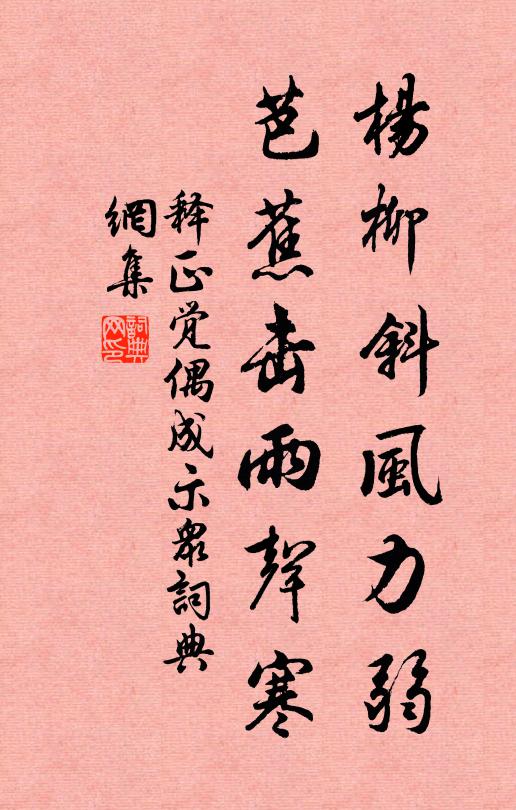 楊柳斜風力弱
芭蕉击雨聲寒
释正觉偶成示眾詞典
網集
詞典网印